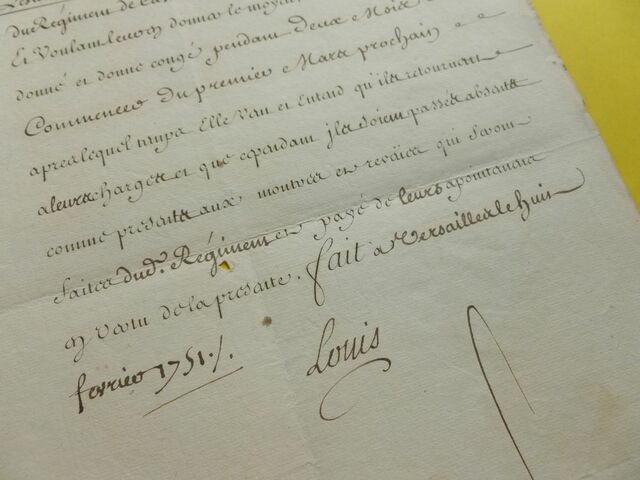 du Régiment de
Et Voulant leur donner le moyen
donné et donne congé pendant Deux Mois a
Commencer Du premier Mars prochain
apres lequel temps Elle Veut et Entend qu'ils retournent
a leurs charges et que cependant ils soient passés absents
comme presents aux montres et reveües qui seront
faites dud. Régiment et payé de leurs apointemens
en vertu de la presente. fait a Versailles le huit
fevrier 1751./.
Louis